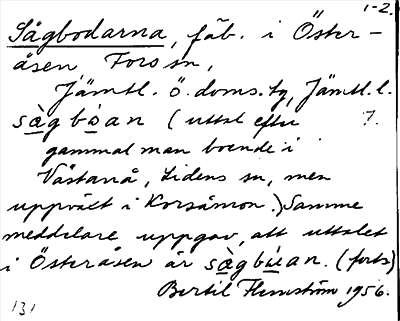 1-2.
Sågbodarna, fäb. i Öster-
åsen Fors sn,
Jämtl. ö. doms. tg, Jämtl. l.
sàgbòan (uttal efter ?.
gammal man boende i
Västanå, Lidens sn, men
uppväxt i Korsåmon.) Samme
meddelare uppgav, att uttalet
i Österåsen är sàgbùan. (forts)
Bertil Flemström 1956.
131